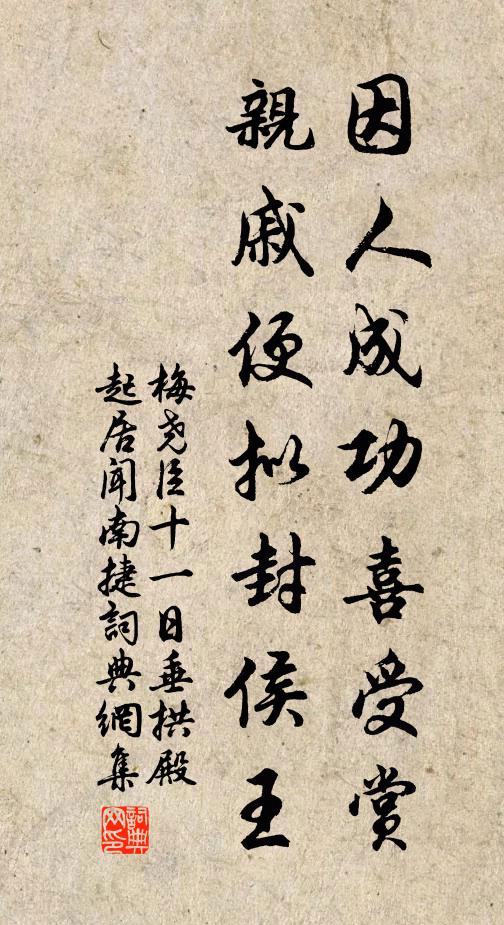 因人成功喜受賞
親戚便拟封侯王
梅尧臣十一日垂拱殿
起居闻南捷詞典網集
詞典
网印